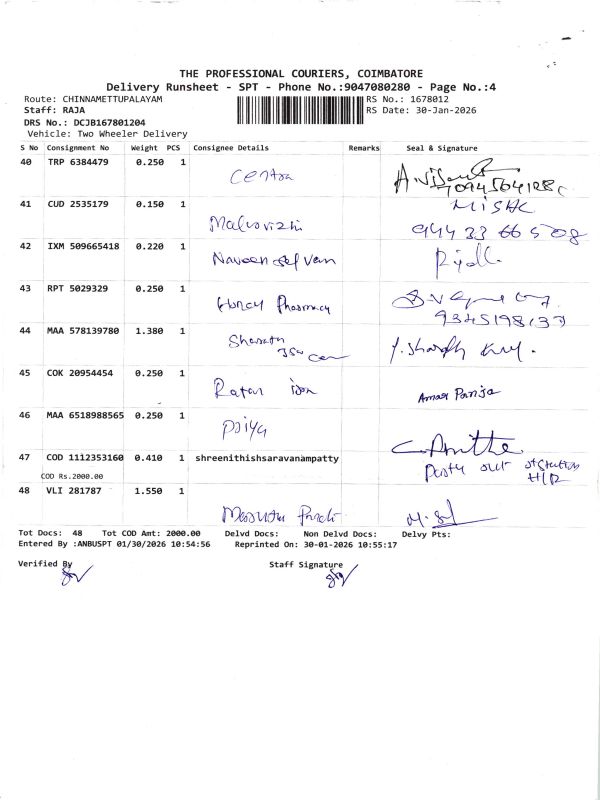 THE PROFESSIONAL COURIERS, COIMBATORE
Delivery Runsheet - SPT - Phone No.:9047080280 - Page No.:4
Route: CHINNAMETTUPALAYAM RS No.: 1678012
Staff: RAJA RS Date: 30-Jan-2026
DRS No.: DCJB167801204
Vehicle: Two Wheeler Delivery
S No Consignment No Weight PCS Consignee Details Remarks Seal & Signature
40 TRP 6384479 0.250 1
Centra
41 CUD 2535179 0.150 1
Malarvizhi
944 33 66 508
42 IXM 509665418 0.220 1
Naveen selvan
43 RPT 5029329 0.250 1
Honey Pharmacy
9345198137
44 MAA 578139780 1.380 1
Sharath
45 COK 20954454 0.250 1
Ratan
Amar Panja
46 MAA 6518988565 0.250 1
Priya
47 COD 1112353160 0.410 1 shreenithishsaravanampatty
Party out of station
COD Rs.2000.00
48 VLI 281787 1.550 1
Tot Docs: 48 Tot COD Amt: 2000.00 Delvd Docs: Non Delvd Docs: Delvy Pts:
Entered By :ANBUSPT 01/30/2026 10:54:56 Reprinted On: 30-01-2026 10:55:17
Verified By Staff Signature